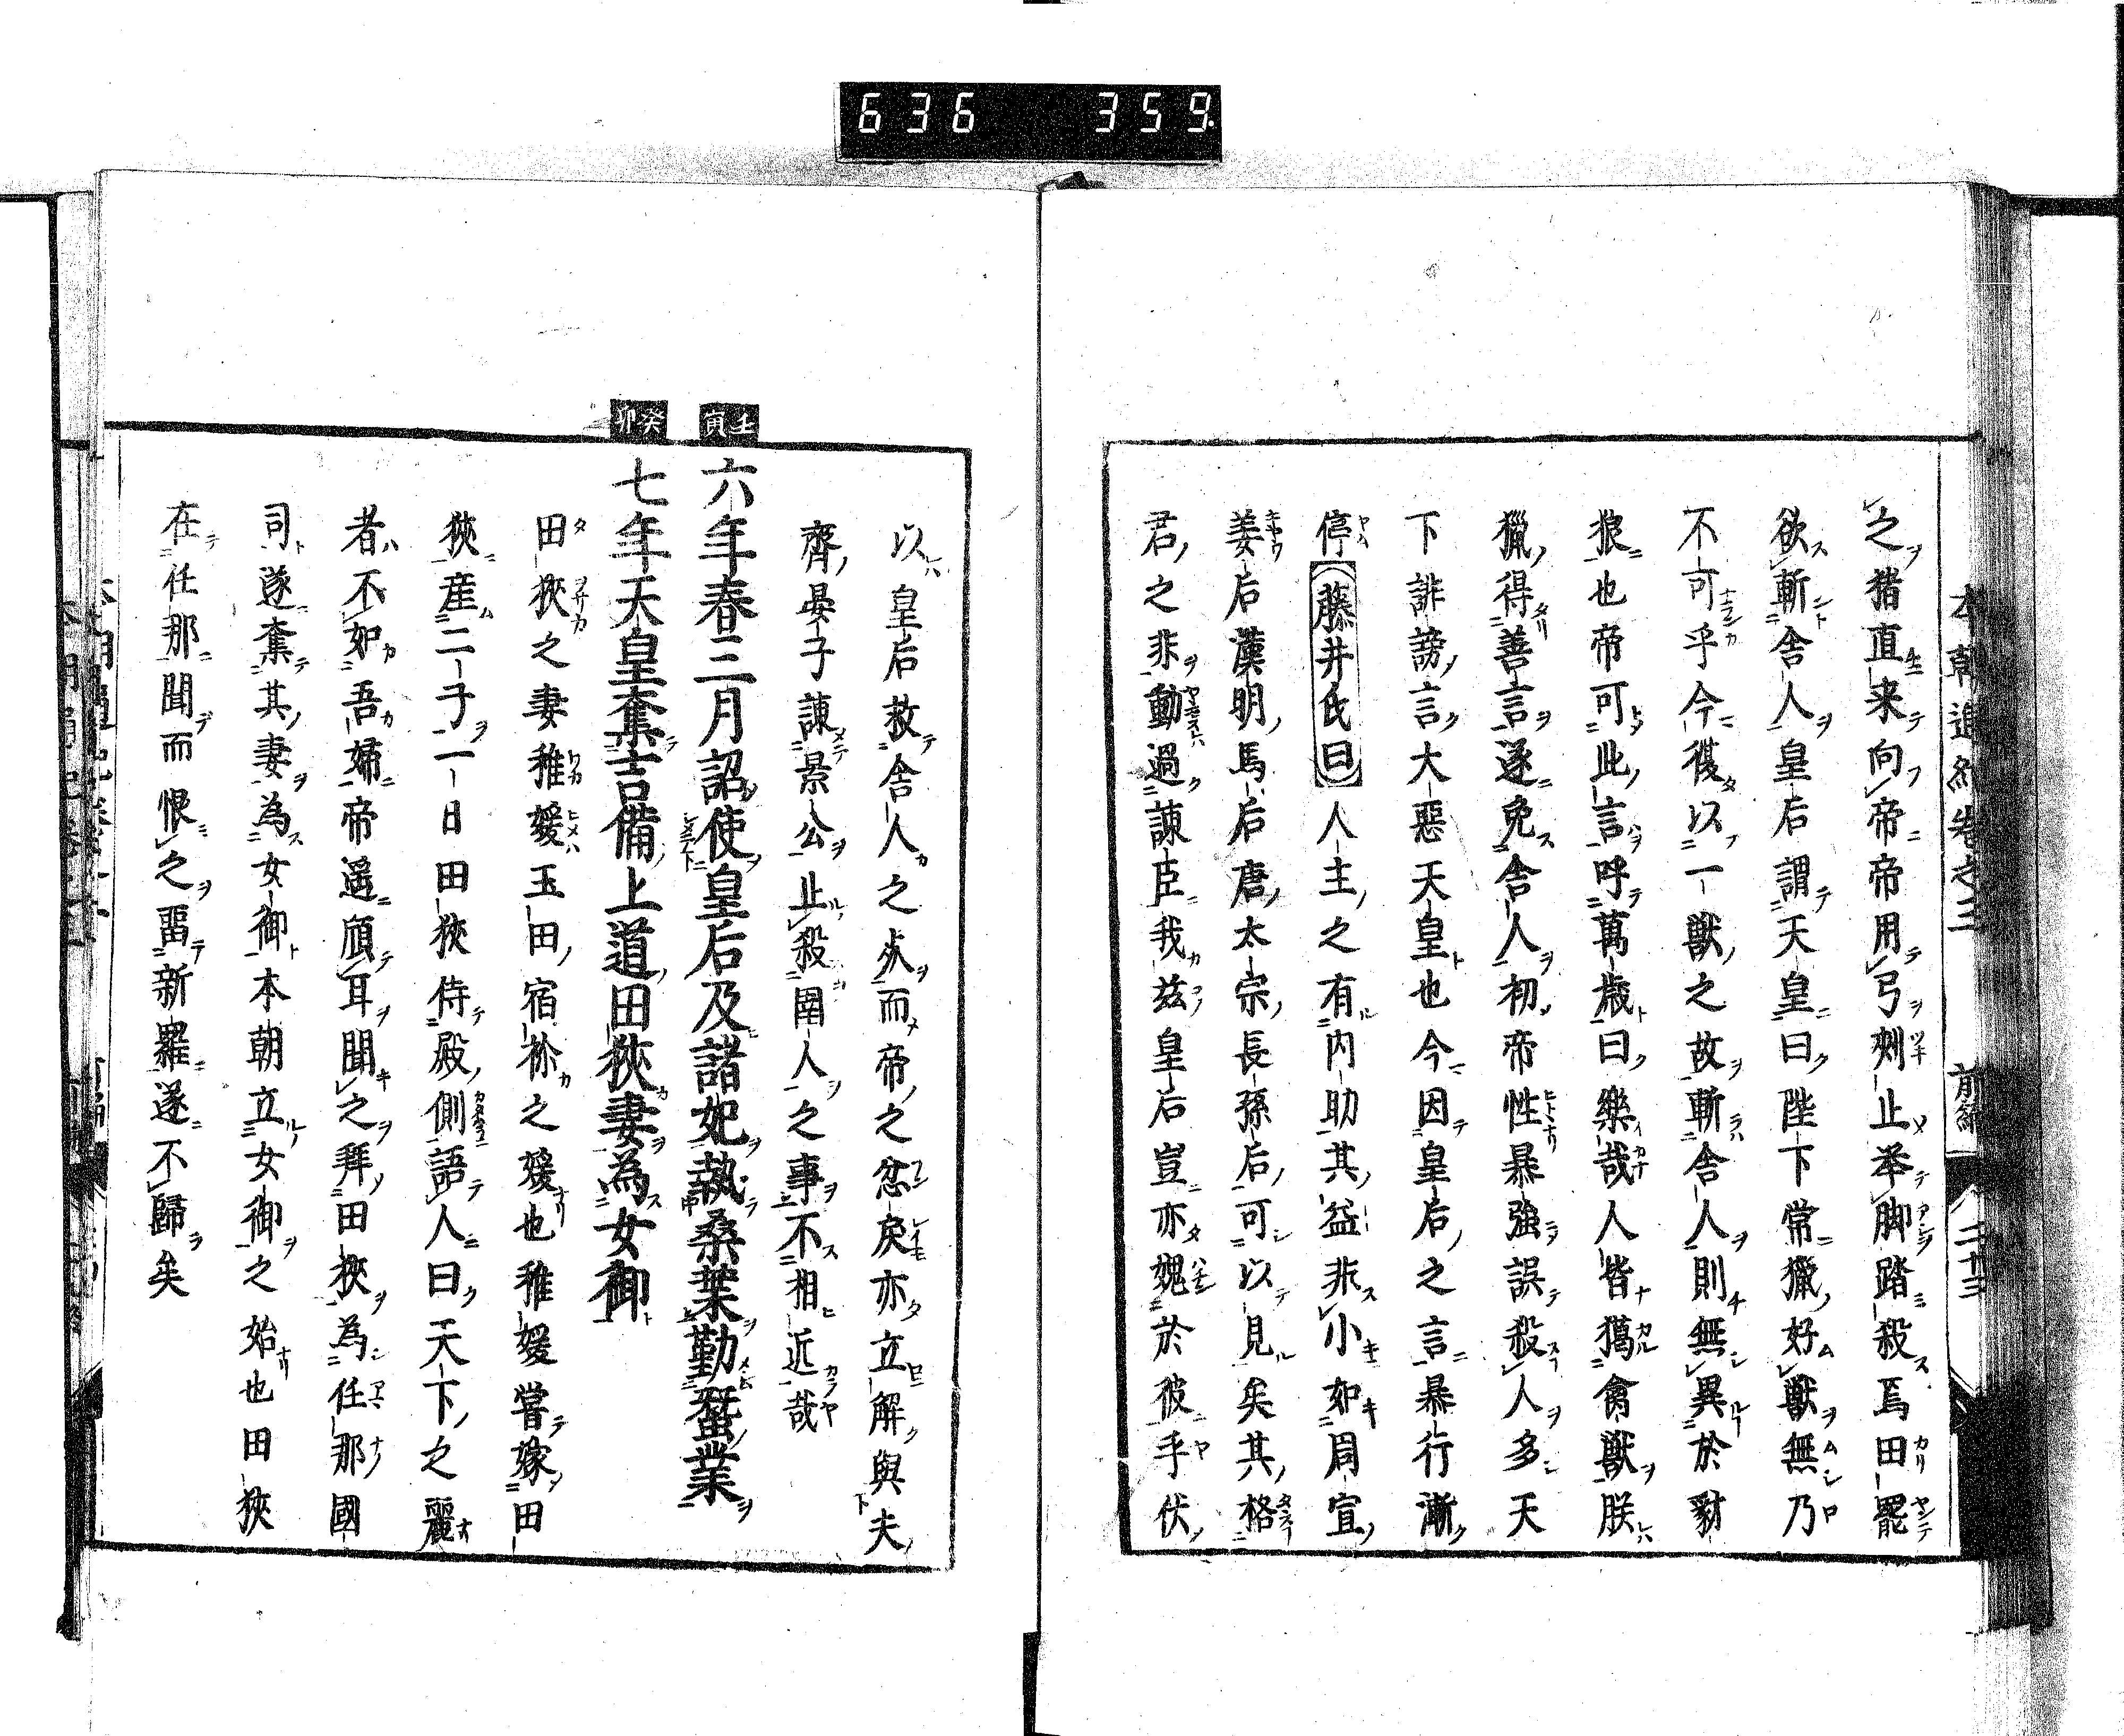 636 359
本朝通紀卷之三 前編 二十三
之猪直来向帝帝用弓刺止举脚踏殺焉田罷
欲斬舎人皇后謂天皇曰陛下常獵好獸無乃
不可乎今復以一獸之故斬舎人則無異於豺
狼也帝可此言呼萬歳曰樂哉人皆獦禽獸朕
獵得善言遂免舎人初帝性暴強誤殺人多天
下誹謗言大惡天皇也今因皇后之言暴行漸
停藤井氏曰人主之有内助其益非小如周宣
姜后漢明馬后唐太宗長孫后可以見矣其格
君之非動過諌臣我茲皇后豈亦媿於彼乎伏
以皇后救舎人之炎而帝之忿戾亦立解與夫
齊晏子諌景公止殺圉人之事不相近哉
壬寅
六年春三月詔使皇后及諸妃執桑葉勤蚕業
癸卯
七年天皇奪吉備上道田狹妻為女御
田狹之妻稚媛玉田宿祢之媛也稚媛嘗嫁田
狹産二子一日田狹侍殿側語人曰天下之麗
者不如吾婦帝遥頎耳聞之拜田狹為任那國
司遂奪其妻為女御本朝立女御之始也田狹
在任那聞而恨之畱新羅遂不歸矣